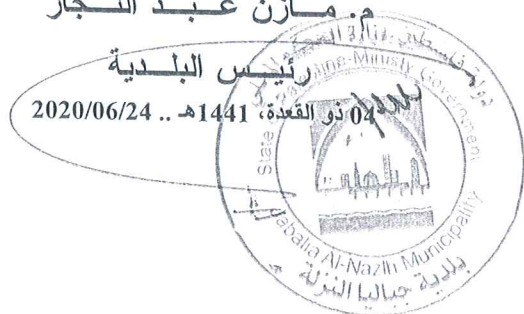 م. مــازن عــبــد النــجــار
رئيــس البلــدية
04 ذو القعدة، 1441هـ .. 2020/06/24
State
Palestine-Ministy
Government
Jabalia Al-Nazlh Municipality
بلدية جباليا النزلة